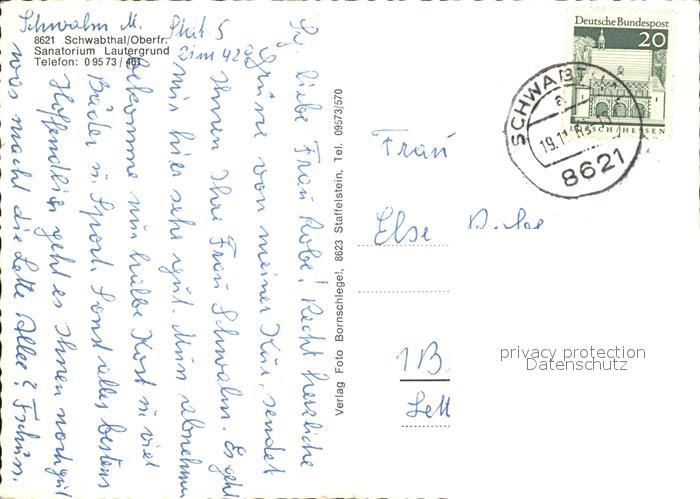 Schwalm M. Stat 5
Zim 420
8621 Schwabthal/Oberfr.
Sanatorium Lautergrund
Telefon: 0 95 73 / 461
Sg. liebe Frau Robe! Recht herzliche
Grüße von meiner Kur, sendet
Ihnen Ihre Frau Schwalm. Es geht
mir hier sehr gut. Muss abnehmen
bekomme nur halbe Kost u. viel
Bäder u. Sport. Sonst alles bestens
Hoffentlich geht es Ihnen noch gut
was macht die Lette Allee? Tschüss.
Verlag Foto Bornschlegel, 8623 Staffelstein, Tel. 09573/570
Deutsche Bundespost
20
LORSCH / HESSEN
SCHWABT
a
19.11.
8621
Frau
Else
1 B.
Lett
privacy protection
Datenschutz